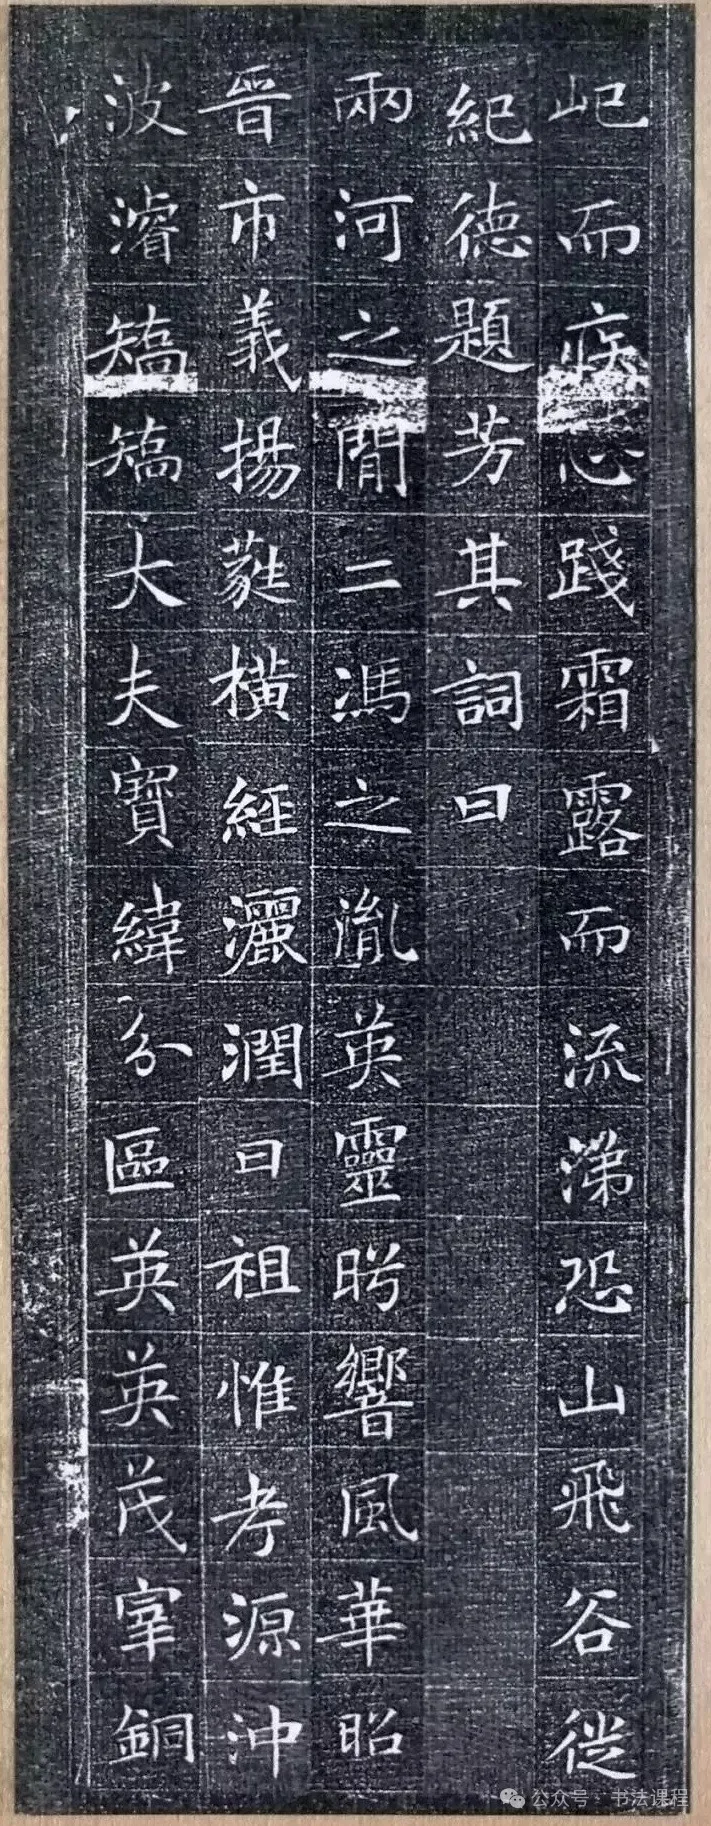 屺而疾心踐霜露而流涕恐山飛谷徙
紀德題芳其詞曰
兩河之閒二馮之胤英靈肸響風華昭
晉市義揚蕤橫經灑潤曰祖惟考源沖
波濬矯矯大夫寶緯分區英英茂宰銅
公众号·书法课程